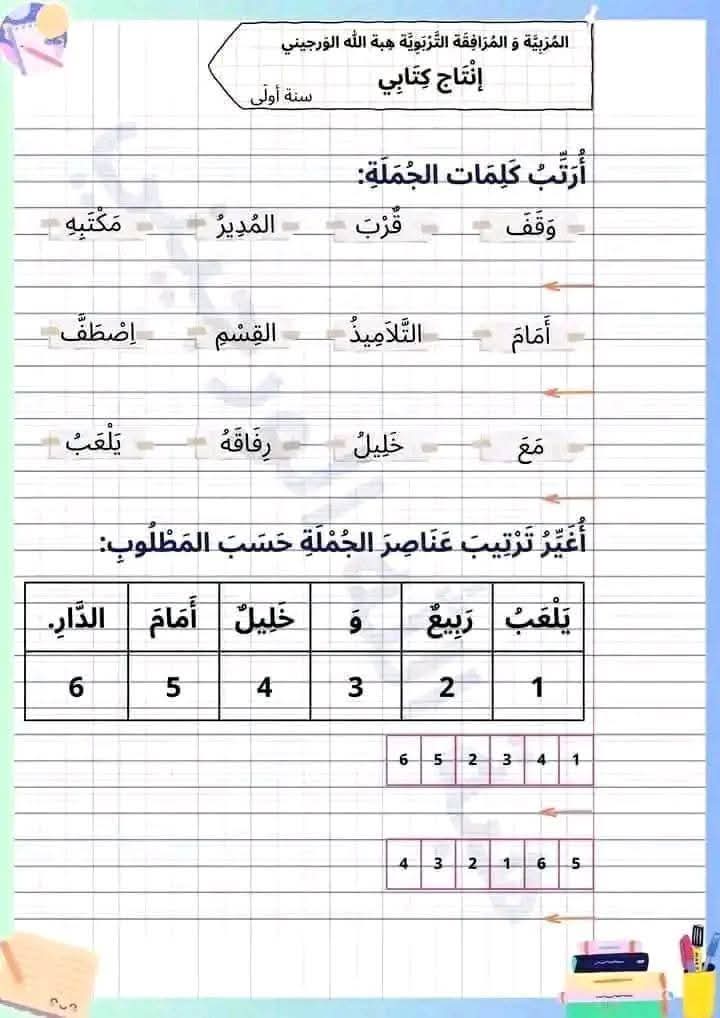 المُرَبِيَّة وَ المُرَافِقَة التَّرْبَوِيَّة هِبة الله الوَرجيني
إنْتَاج كِتَابِي
سنة أولَى
أُرَتِّبُ كَلِمَات الجُمَلَةِ:
وَقَفَ قُرْبَ المُدِيرُ مَكْتَبِهِ
أَمَامَ التَّلاَمِيذُ القِسْمِ اِصْطَفَّ
مَعَ خَلِيلُ رِفَاقَهُ يَلْعَبُ
أُغَيِّرُ تَرْتِيبَ عَنَاصِرَ الجُمْلَةِ حَسَبَ المَطْلُوبِ:
يَلْعَبُ رَبِيعٌ وَ خَلِيلٌ أَمَامَ الدَّارِ.
1 2 3 4 5 6
1 4 3 2 5 6
5 6 1 2 3 4